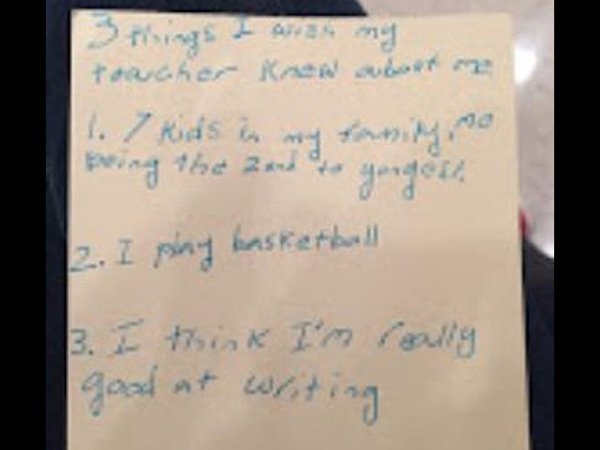 3 things I wish my
teacher knew about me
1. 7 kids in my family, me
being the 2nd to yongest.
2. I play basketball
3. I think I'm really
good at writing